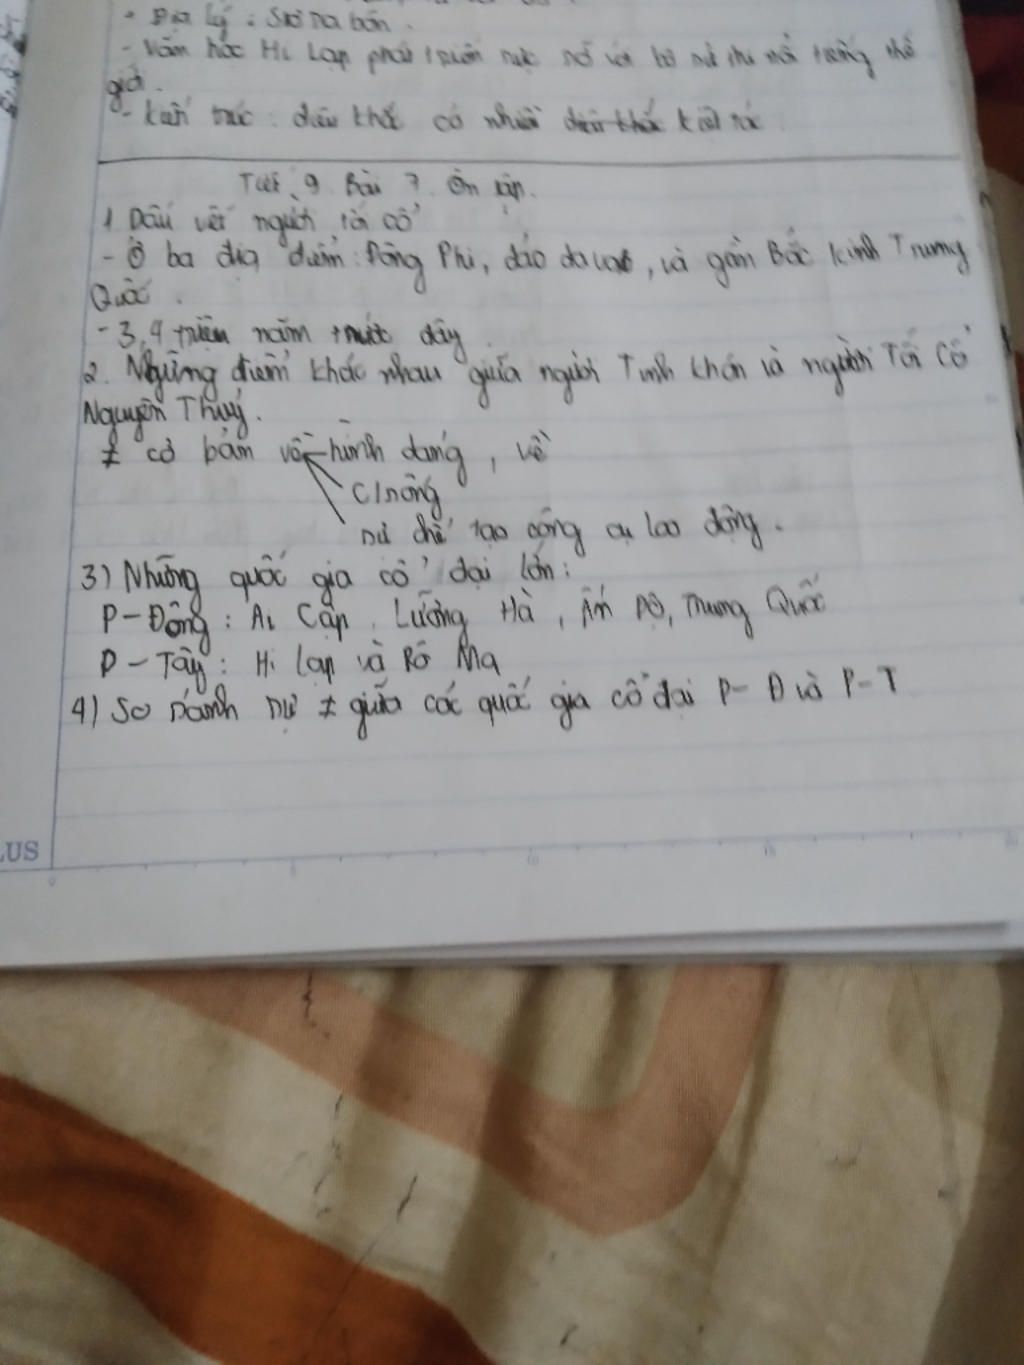 - Địa lý : Sơ ra bôn.
- Văn học Hi Lạp phát triển rực rỡ với bộ sử thi nổi tiếng thế
giới.
- kiến trúc : điêu khắc có nhiều điêu khắc kiệt tác
Tiết 9 Bài 7 Ôn tập.
1 Dấu vết người tối cổ
- Ở ba địa điểm : Đông Phi, đảo Java, và gần Bắc Kinh Trung
Quốc.
- 3,4 triệu năm trước đây.
2. Những điểm khác nhau giữa người Tinh khôn và người Tối Cổ
Nguyên Thuỷ.
≠ cơ bản về hình dáng, về
C/nông
sự chế tạo công cụ lao động.
3) Những quốc gia cổ đại lớn:
P-Đông : Ai Cập, Lưỡng Hà, Ấn Độ, Trung Quốc
P-Tây : Hi Lạp và Rô Ma
4) So sánh sự ≠ giữa các quốc gia cổ đại P-Đ và P-T
LUS
0 5 10 15 20